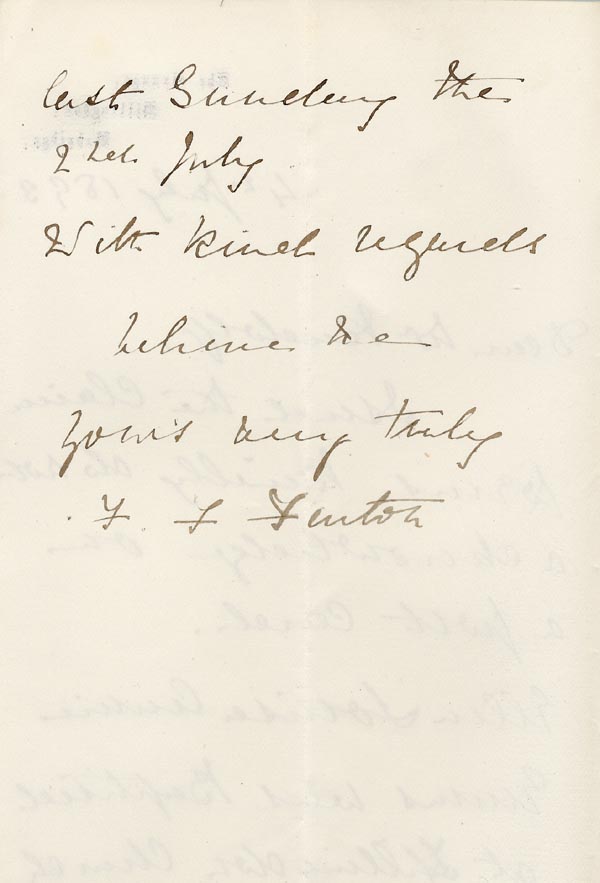 last Sunday the
2nd July
With kind regards
believe me
Yours very truly
F F Fenton